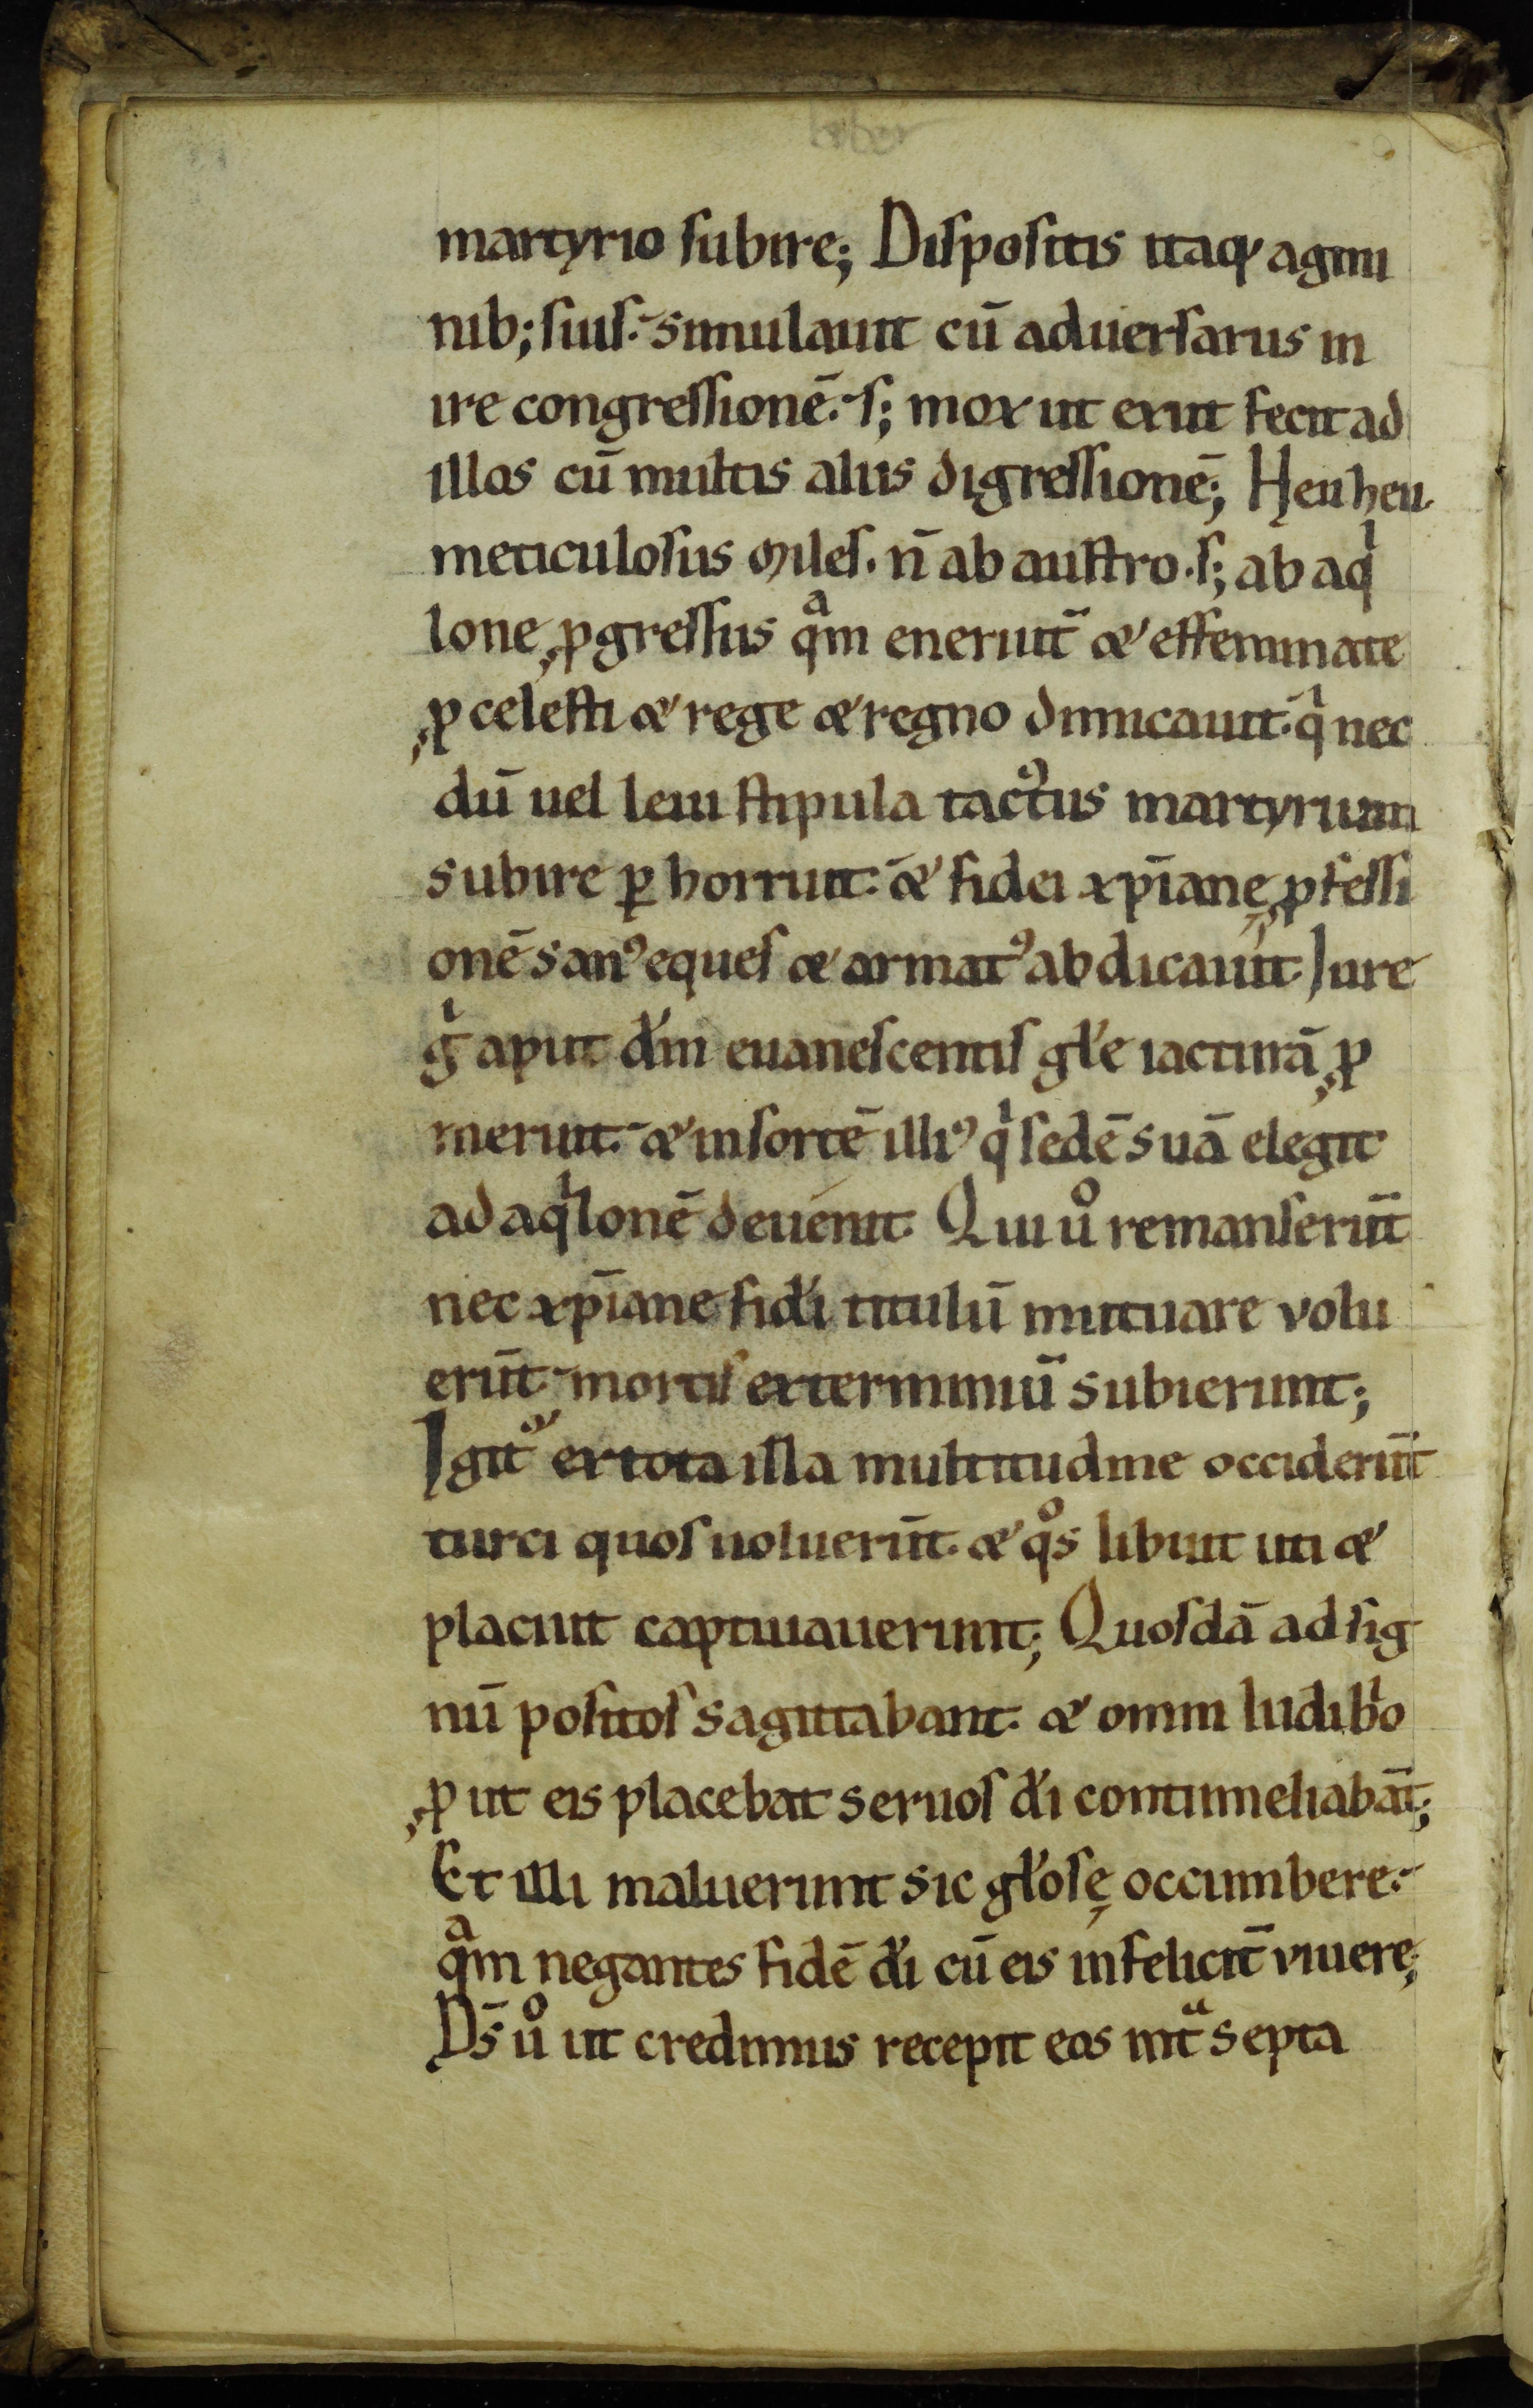 martyrio subire; Dispositis itaq; agmi
nib; suis. simulauit cū aduersariis in
ire congressionē. s; mox ut exiit fecit ad
illos cū multis aliis digressionē; Heu heu.
meticulosus miles. n̄ ab austro. s; ab aqͥ
lone ꝓgressus qͣm eneruit̄ & effeminate
ꝓ celesti & rege & regno dimicauit. qͥ nec
dū uel leui stipula tactus martyrium
subire ꝑhorruit. & fidei xp̄ianę ꝓfessi
onē sanꝰ eques & armatꝰ abdicauit. Iure
gͥ aput dm̄ euanescentis gl̄e iacturā ꝓ
meruit. & in sortē illiꝰ qͥ sedē suā elegit
ad aqͥlonē deuenit. Qui uͦ remanserūt
nec xp̄iane fidi titulū mutuare uolu
erūt. mortis exterminiū subierunt;
Igit᷑ ex tota illa multitudine occiderūt
turci quos uoluerūt. & qͦs libuit uti &
placuit captiuauerunt; Quosdā ad sig
nū positos sagittabant. & omni ludibͥo
ꝓut eis placebat seruos dī contumeliabāt;
Et illi maluerunt sic gl̄osę occumbere.
qͣm negantes fidē dī cū eis infelicit̄ uiuere;
Ds̄ uͦ ut credimus recepit eos intͣ septa